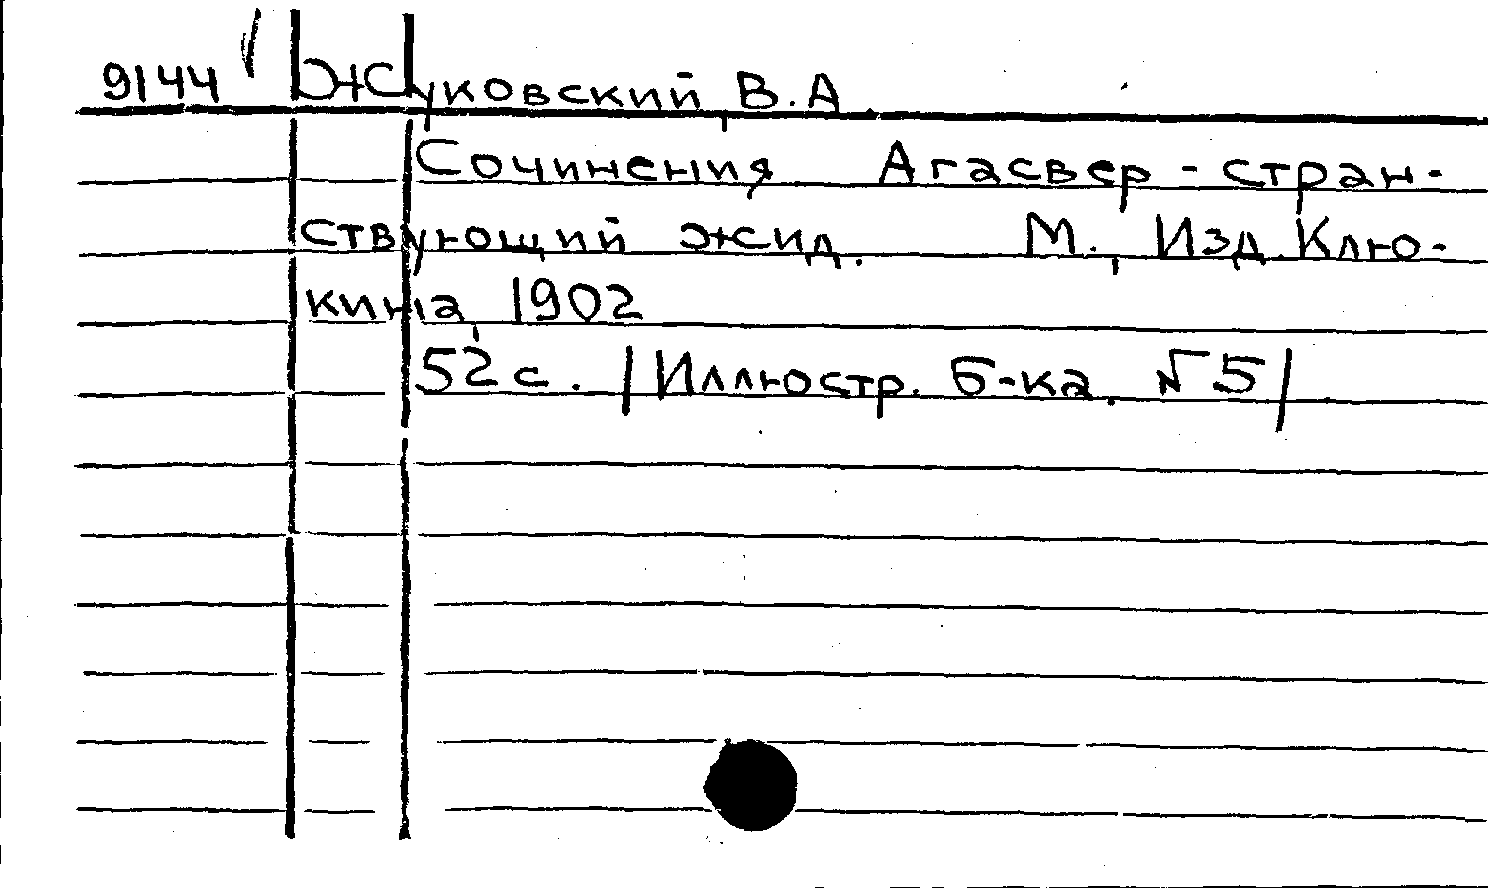 9144 Жуковский, В.А.
Сочинения Агасвер - стран-
ствующий жид. М., Изд. Клю-
кина, 1902
52 с. /Иллюстр. б-ка. № 5/